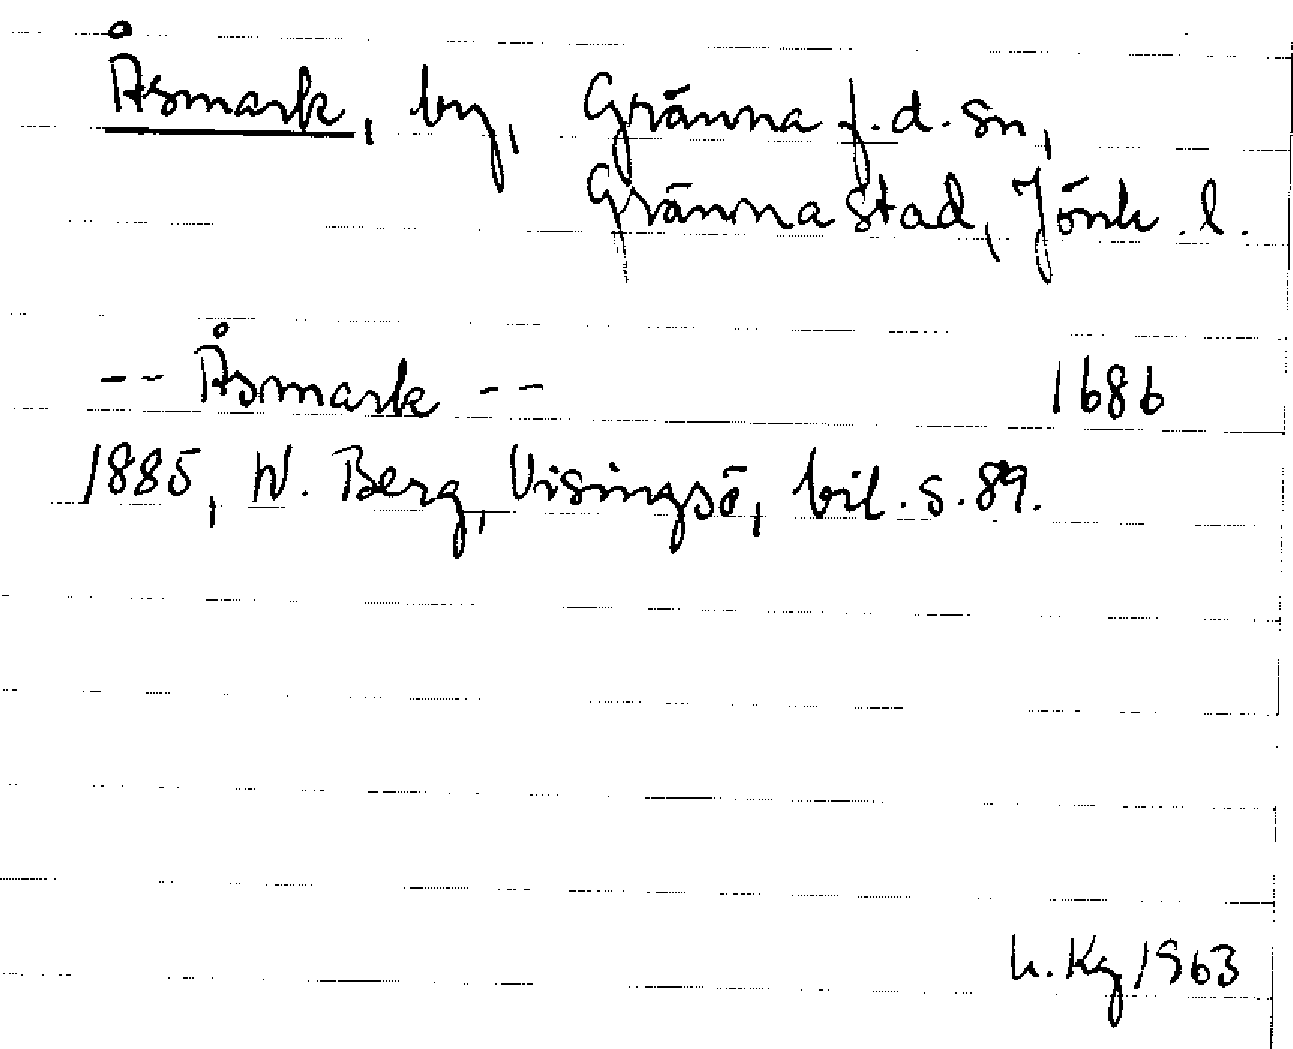 Åsmark, by, Gränna f.d. sn,
Gränna stad, Jönk. l.
-- Åsmark -- 1686
1885, W. Berg, Visingsö, bil. s. 89.
h. Kg 1963